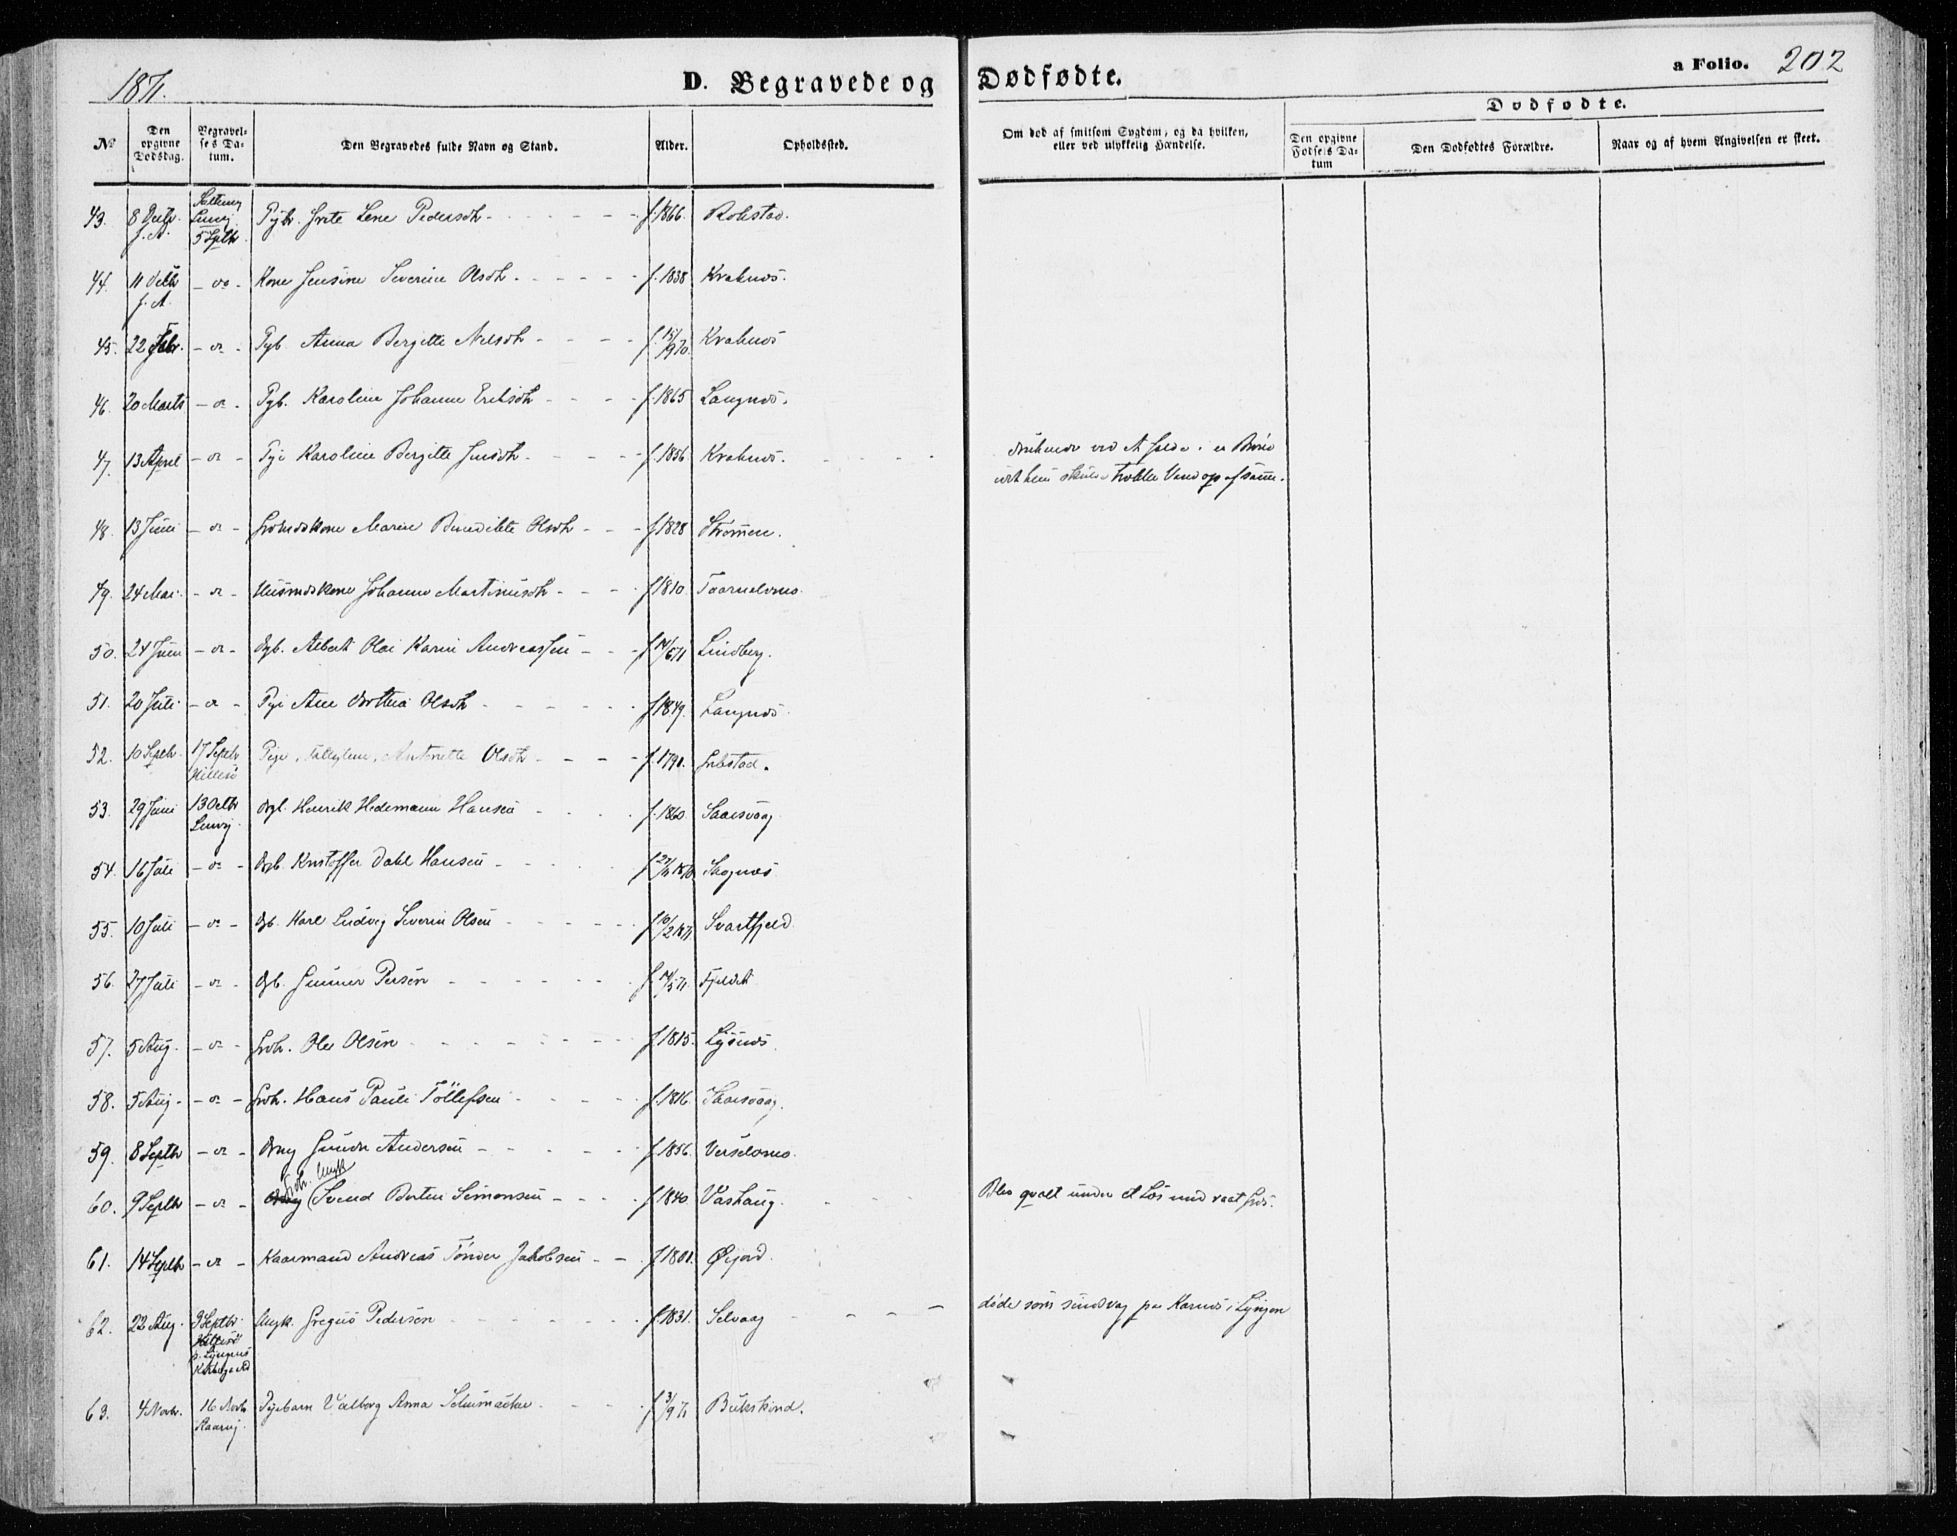 1871.
D. Begravede og Dødfødte.
a Folio. 202
Dødfødte.
No
Den opgivne Dødsdag.
Begravelses Datum.
Den Begravedes fulde Navn og Stand.
Alder.
Opholdssted.
Om død af smitsom Sygdom, og da hvilken, eller ved ulykkelig Hændelse.
Den opgivne Fødsels Datum
Den Dødfødtes Forældre.
Naar og af hvem Angivelsen er skeet.
43. 8 f. A. Lenvig 5 Septbr Pigb. Grete Lene Pedersdtr f. 1866. Robstad.
44. 11 Octbr f. A. - do - Kone Jensine Severine Olsdtr f. 1838 Kraknes.
45. 22 Febr. - do - Pgb. Anna Bergitte Nilsdtr Kraknes
46. 20 Marts - do - Pgb. Karoline Johanne Eriksdtr f. 1865 Langnes.
47. 13 April - do - Pige Karoline Bergitte Jensdtr f. 1856 Kraknes. druknede ved at falde i en Brønd
idet hun skulde trække Vand op af samme.
48. 13 Juni - do - Gaardmdskone Maren Benedikte Olsdtr f. 1828 Strømmen.
49. 24 Mai - do - Husmdskone Johanne Martinusdtr f. 1810 Taarnelvmo.
50. 24 Juni - do - Dgb. Albert Olai Karin Andreassen f. 14/6 71 Lindberg.
51. 20 Juli - do - Pige Ane Dorthea Olsdtr f. 1849. Langnes
52. 10 Septbr. 17 Septbr Hillesø Pige, Antonette Olsdtr f. 1790. Gibostad.
53. 29 Juni 13 Octbr Lenvig. Dgb. Henrik Hedemann Hansen f. 1860. Skarsvaag
54. 16 Juli - do - Dgb. Kristoffer Dahl Hansen Skognes
55. 10 Juli - do - Dgb. Karl Ludvig Severin Olsen f. 10/2 1871 Svartfjeld
56. 27 Juli - do - Dgb. Gunner Persen f. 14/5 71. Fjeldet
57. 5 Aug. - do - Gdbr. Ole Olsen f. 1815. Lysnes.
58. 5 Aug. - do - Gdbr. Hans Pauli Tøllefsen f. 1816. Skarsvaag.
59. 8 Septbr - do - Dreng Andersen f. 1856. Verselvmo.
60. 9 Septbr - do - Ungk. Svend Bertin Simonsen f. 1840. Vashaug. Blev qvalt under et Læs med vaat Græs.
61. 14 Septbr - do - Kaarmand Andreas Tønder Jakobsen f. 1801. Øijord.
62. 22 Aug. 9 Septbr. Hillesø p. Lyngens Kirkegaard Ungk. Gregus Pedersen f. 1831. Selvaag døde som sindsvag paa Karnes i Lyngen
63. 4 Novbr. 16 Novbr Pigebarn Valborg Anna Schumacher f. 3/9 71 Bukskind.